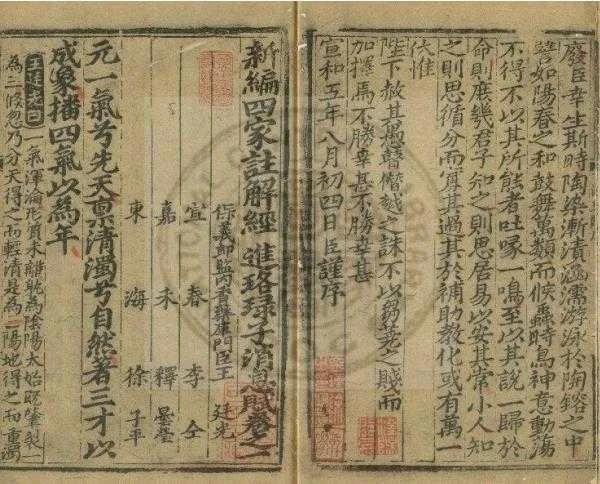 廢臣幸生斯時陶染漸漬涵濡游泳於陶鎔之中
譬如陽春之和鼓舞萬類而候蟲時鳥神意動蕩
不得不以其所能者吐喙一鳴至以其說一歸於
命則庶幾君子知之則思居易以安其常小人知
之則思循分而寡其過其於補助教化或有萬一
伏惟
陛下赦其愚瞽僭越之誅不以芻蕘之賤而
加擇焉不勝幸甚不勝幸甚
宣和五年八月初四日臣謹序
新編四家註解經進珞琭子消息賦卷之一
保義郎監內香藥庫門臣王廷光
宜春李仝
嘉禾釋曇瑩
東海徐子平
元一氣兮先天稟清濁兮自然著三才以
成象播四氣以為年
王廷光曰氣渾淪形質未離孰為陰陽太始既肇裂一
為二倏忽乃分天得之而輕清是為陽地得之而重濁